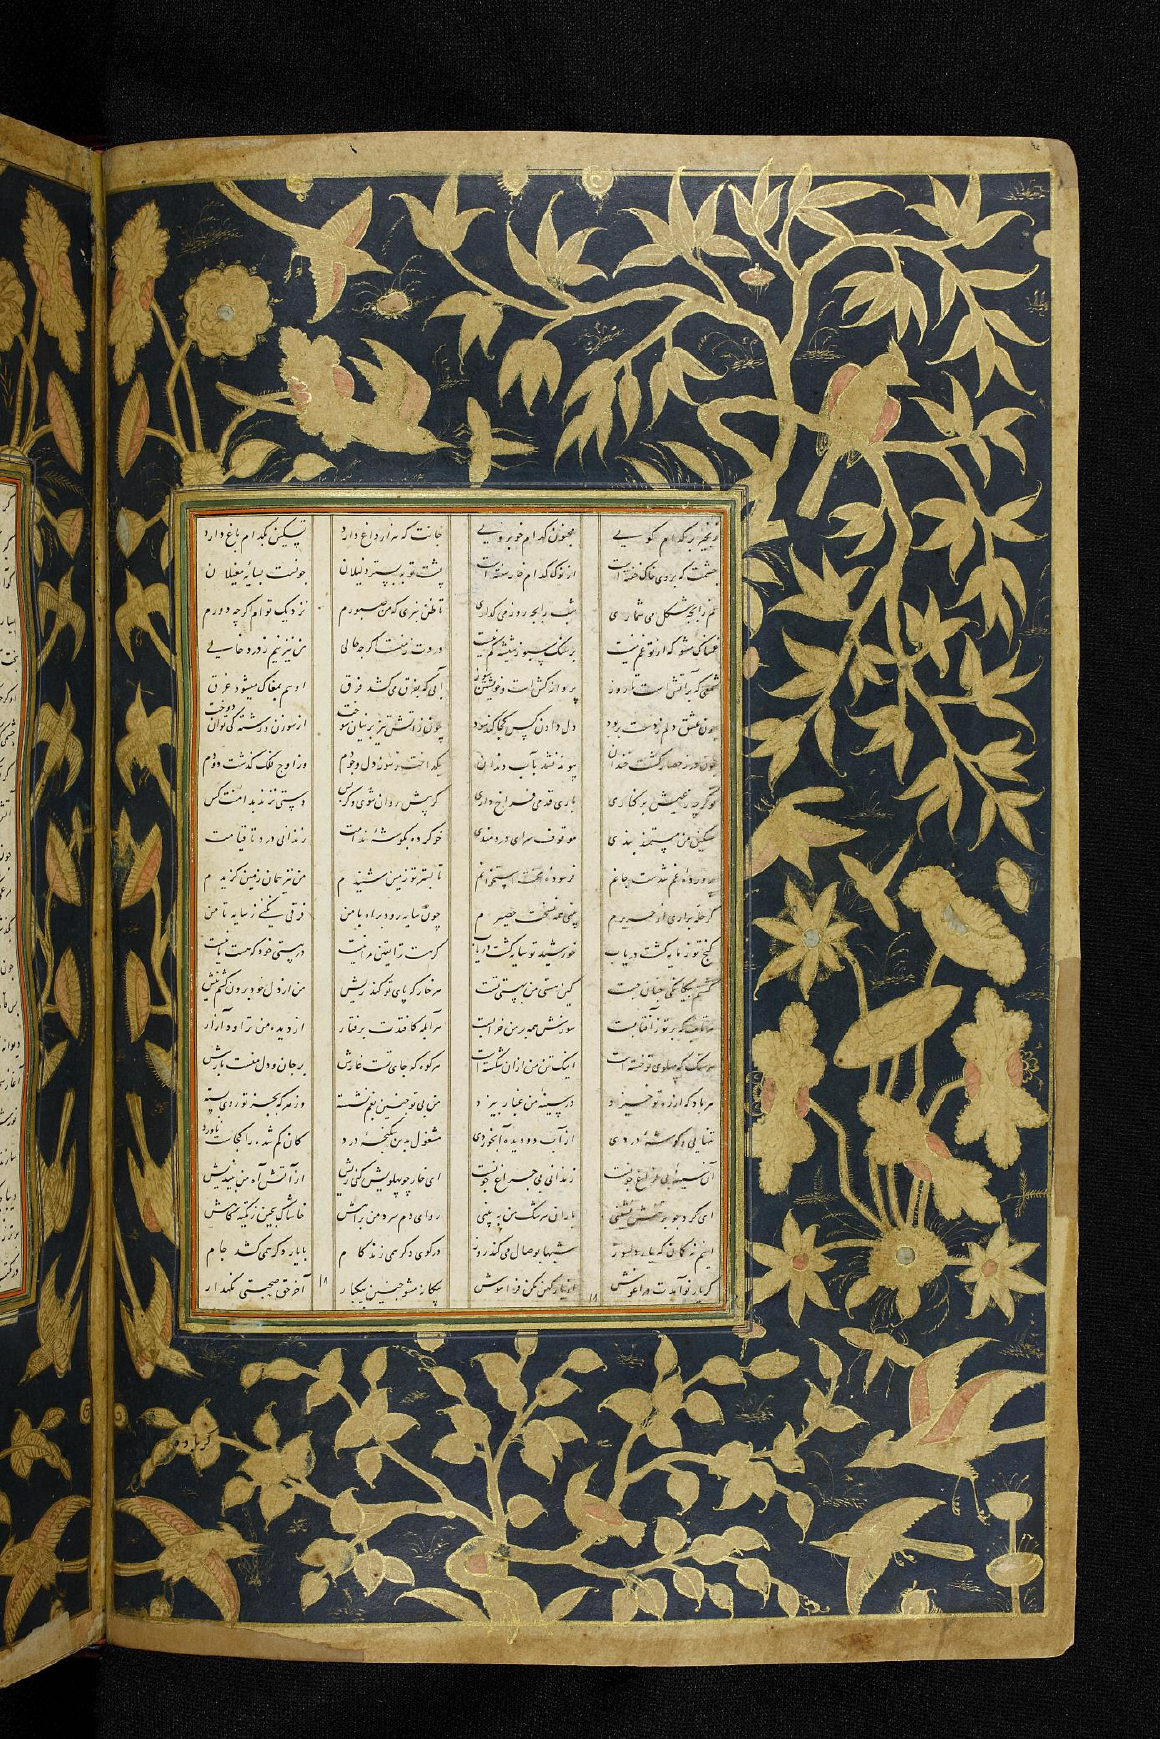 بر کدام کویی مجنون کدام خوبرویی جانت که هزار داغ دارد تسکین بکدام باغ دارد
چشمت که بروی خاک خفته است از نوک کدام خار سفته است پشت تو به بستر ذلیلان چونست بسایه مغیلان
غم را بچه شکل می شماری شب را بچه روز می گذاری تا ظن نبری که من صبورم نزدیک توام اگر چه دورم
غمناک مشو که از تو غم نیست بر سنگ سبو ز شیشه کم نیست دردت ز منست اگر چه حالی من نیز نیم ز درد خالی
شمعی که بر آتش است هر روز پروانه کش است و خویشتن سوز آبی که بفرق می کشد فرق او هم بمغاک میشود غرق
چون عشق دلم ز دست بربود دل دادن کس کجا کند سود چون ز آتش تیز پرنیان سوخت از سوزن و رشته کی توان دوخت
خون در پیوند نشد بآب دندان بگداخت ز سوز دل وجودم وز اوج فلک گذشت دودم
تو گر چه ز عیش بر کناری باری قدمی فراخ داری گر پیش روان شوی و گر پس دستی نزند بدامنت کس
مسکین من مستمند بندی موقوف سرای دردمندی خو کرده بگوشه ندامت زندانی درد تا قیامت
پرورده غم شدست جانم فرسوده محنت استخوانم تا بستر تو زمین شنیدم من نیز همان زمین گزیدم
براری از حریرم حصیرم چون سایه رود براه با من فرقی نکنی ز سایه تا من
گنج تو ز مایه گشت دریاب خورشید تو سایه گشت دریاب گر هست ترا یقین مرا نیست در هستی خود
گشتم ز یگانگی چنان جفت کین هستی من هر خار که پای تو کند ریش من از دل خود برون کشم نیش
هر تاب که بر تو ز آفتابست سوزش همه بر من خرابست هر آبله کافتدت برفتار از دیده من تراود آزار
هر سنگ که پهلوی تو خسته است اینک تن من ازان شکسته است هر کوه که جای تست غارش بر جان و دل منست بارش
هر باد که از ره تو خیزد در سینه من غبار بیزد من بی تو چنین بغم نشسته وز هر که بجز تو روی بسته
تنهایی و گوشه دردی از آب دو دیده آبخوردی مشغول بدین شکنجه درد کان گم شده را کجاست ناورد
آن سینه بی فراغ چونست زندانی بی چراغ چونست ای خار چو پهلویش کنی ریش از آتش آه من بیندیش
ای گرد چو بر تنش نشینی باران سرشک من ببینی رو ای دم سرد من براهش خاشاک بچین ز تکیه گاهش
اینم نه گمان که یار دلسوز شبها بوصال می کند روز در کوی دگر همی زند گام با یار دگر همی کشد جام
گر یار نو آیدت در آغوش از یار کهن مکن فراموش بیکار مشو چنین بیکبار آخر حق صحبتی نگهدار